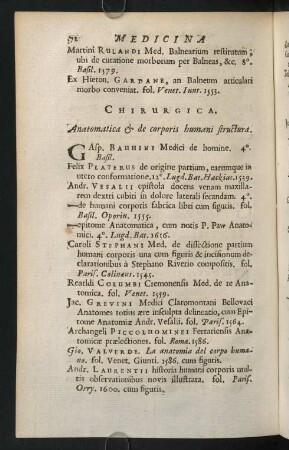 52 MEDICINA
Martini RULANDI Med. Balnearium restitutum;
ubi de curatione morborum per Balneas, &c. 8°.
Basil. 1579.
Ex Hieron. GARDANE, an Balneum articulari
morbo conveniat. fol. Venet. Junt. 1553.
CHIRURGICA,
Anatomatica & de corporis humani structura.
GAsp. BAUHINI Medici de homine. 4°.
Basil.
Felix PLATERUS de origine partium, earumque in
utero conformatione. 12°. Lugd. Bat. Hackius. 1529.
Andr. VESALII epistola docens venam maxilla-
rem dextri cubiti in dolore laterali secandam. 4°.
—de humani corporis fabrica libri cum figutis. fol.
Basil. Oporin. 1555.
—epitome Anatomatica, cum notis P. Paw Anato-
mici. 4°. Lugd. Bat. 1616.
Caroli STEPHANI Med. de dissectione partium
humani corporis una cum figutis & incisionum de-
clarationibus à Stephano Riverio compositis, fol.
Paris. Colinaus. 1545.
Realdi COLUMBI Cremonensis Med. de re Ana-
tomica. fol. Venet. 1559.
Jac. GREVINI Medici Claromontani Bellovaci
Anatomes totius ære insculpta delineatio, cum Epi-
tome Anatomiæ Andr. Vesalii. fol. Paris. 1564.
Archangeli PICCOLHOMINEI Ferrariensis Ana-
tomicæ prælectiones. fol. Roma. 1586.
Gio. VALVERDE. La anatomia del corpo huma-
no. fol. Venet. Giunti. 1586. cum figutis.
Andr. LAURENTII historia humani corporis mul-
tis observationibus novis illustrata. fol. Paris.
Orry. 1600. cum figutis.